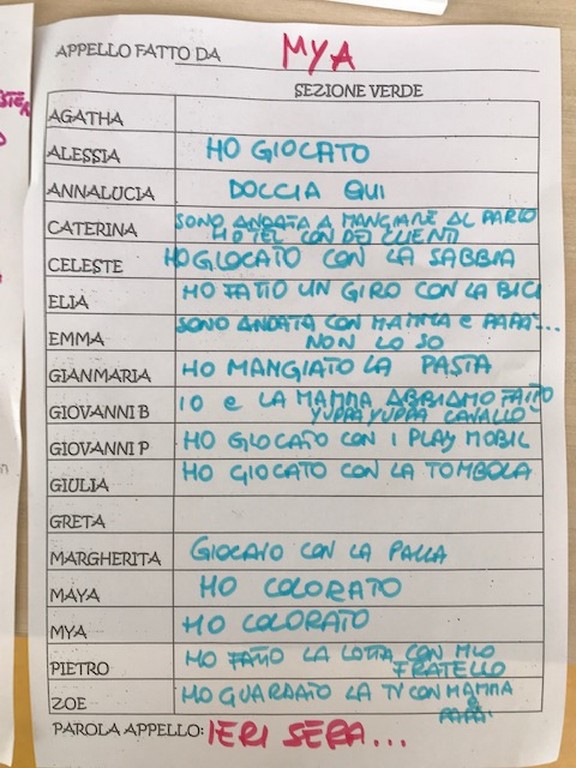 APPELLO FATTO DA MYA
SEZIONE VERDE
AGATHA
ALESSIA HO GIOCATO
ANNALUCIA DOCCIA QUI
CATERINA SONO ANDATA A MANGIARE AL PARCO
HOTEL CON DEI CLIENTI
CELESTE HO GIOCATO CON LA SABBIA
ELIA HO FATTO UN GIRO CON LA BICI
EMMA SONO ANDATA CON MAMMA e PAPÀ...
NON LO SO
GIANMARIA HO MANGIATO LA PASTA
GIOVANNI B IO e LA MAMMA ABBIAMO FATTO
YUPPA YUPPA CAVALLO
GIOVANNI P HO GIOCATO CON I PLAY MOBIL
GIULIA HO GIOCATO CON LA TOMBOLA
GRETA
MARGHERITA GIOCATO CON LA PALLA
MAYA HO COLORATO
MYA HO COLORATO
PIETRO HO FATTO LA LOTTA CON MIO
FRATELLO
ZOE HO GUARDATO LA TV CON MAMMA
e
PAPÀ
PAROLA APPELLO: IERI SERA...